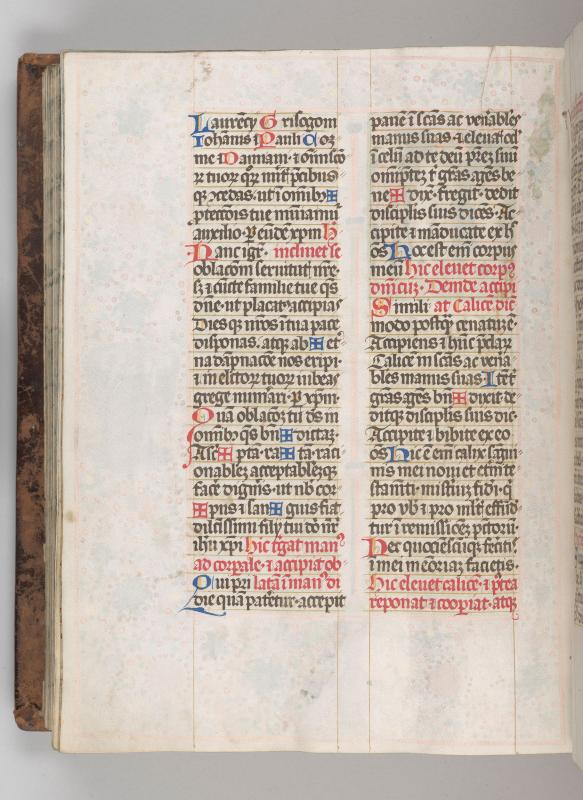 Laurēcij Grisogoni
Iohānnis ⁊ Pauli Coz
me ⁊ Damiani · ⁊ omniū scō
ꝝ tuoꝝ qꝝ mĩtꝭ p̄cibus
q̄ꝫ ↄcedas · ut ĩ omĩbꝫ ✠
ꝓtectōis tue muniamur
auxilio · P eundē xp̄m
Hanc igr̄ · inclinet se
oblacōem seruitutꝭ nr̄e ·
sꝫ ⁊ cūcte familie tue q̄s
dn̄e · ut placatꝰ accipias
Dies qꝫ nr̄os ĩ tua pace
disponas · atqꝫ ab ✠ et̾
na dāpnacōe nos eripi ·
⁊ in elc̄toꝝ tuoꝝ iubeas
grege numerari · P xp̄m ·
Quā oblacōꝫ tu ds̄ in
omĩbꝫ q̄s bn̄ ✠ dictaꝫ ·
Asc̄ ✠ ptā · ra ✠ tā · raci
onabileꝫ acceptabileqꝫ
face digneris · ut nb̄ cor
✠ pus ⁊ san ✠ guis fiat
dilcissimi filij tui dn̄i nr̄i
ih̄u xp̄i hic t̾gat manꝰ
ad corꝑale · ⁊ accipiat ob
Qui pri latā ĩ manꝰ di
die quā pateretur · accepit
panē ĩ scās ac ven̾abiles
manus suas · ⁊ eleuatꝭ oc̄l
ĩ celū ad te deū pr̄eꝫ suū
omīpteꝫ t̾ grās agēs be
ne ✠ dix̄ · fregit · dedit
discipl̄is suis dicēs · Ac
cipite ⁊ māducate ex h̾
oēs Hoc est em̄ corpus
meū hic eleuet corpꝰ
Simili at Calicē dic̄
modo postqꝫ cenatū ē ·
Accipiens ⁊ hūc p̄claꝝ
Calicē in scās ac ven̾a
biles manus suas Itē t̾
grās agēs bn̄ ✠ dixit · de
ditqꝫ discipl̄is suis dic̄ ·
Accipite ⁊ bibite ex eo
oēs Hic ē em̄ calix sāgui
nis mei noui et et̾ni te
stamēti · mist̾iuꝫ fidei · q̄
pro vb̄ ⁊ pro mlt̾ effūd
tur ĩ remissiōeꝫ pctōrū ·
Hec quociēscūqꝫ fec̾itꝭ
ĩ mei memoriaꝫ facietis ·
hic eleuet calicē · ⁊ p̄tea
reponat ⁊ coopiat · atqꝫ